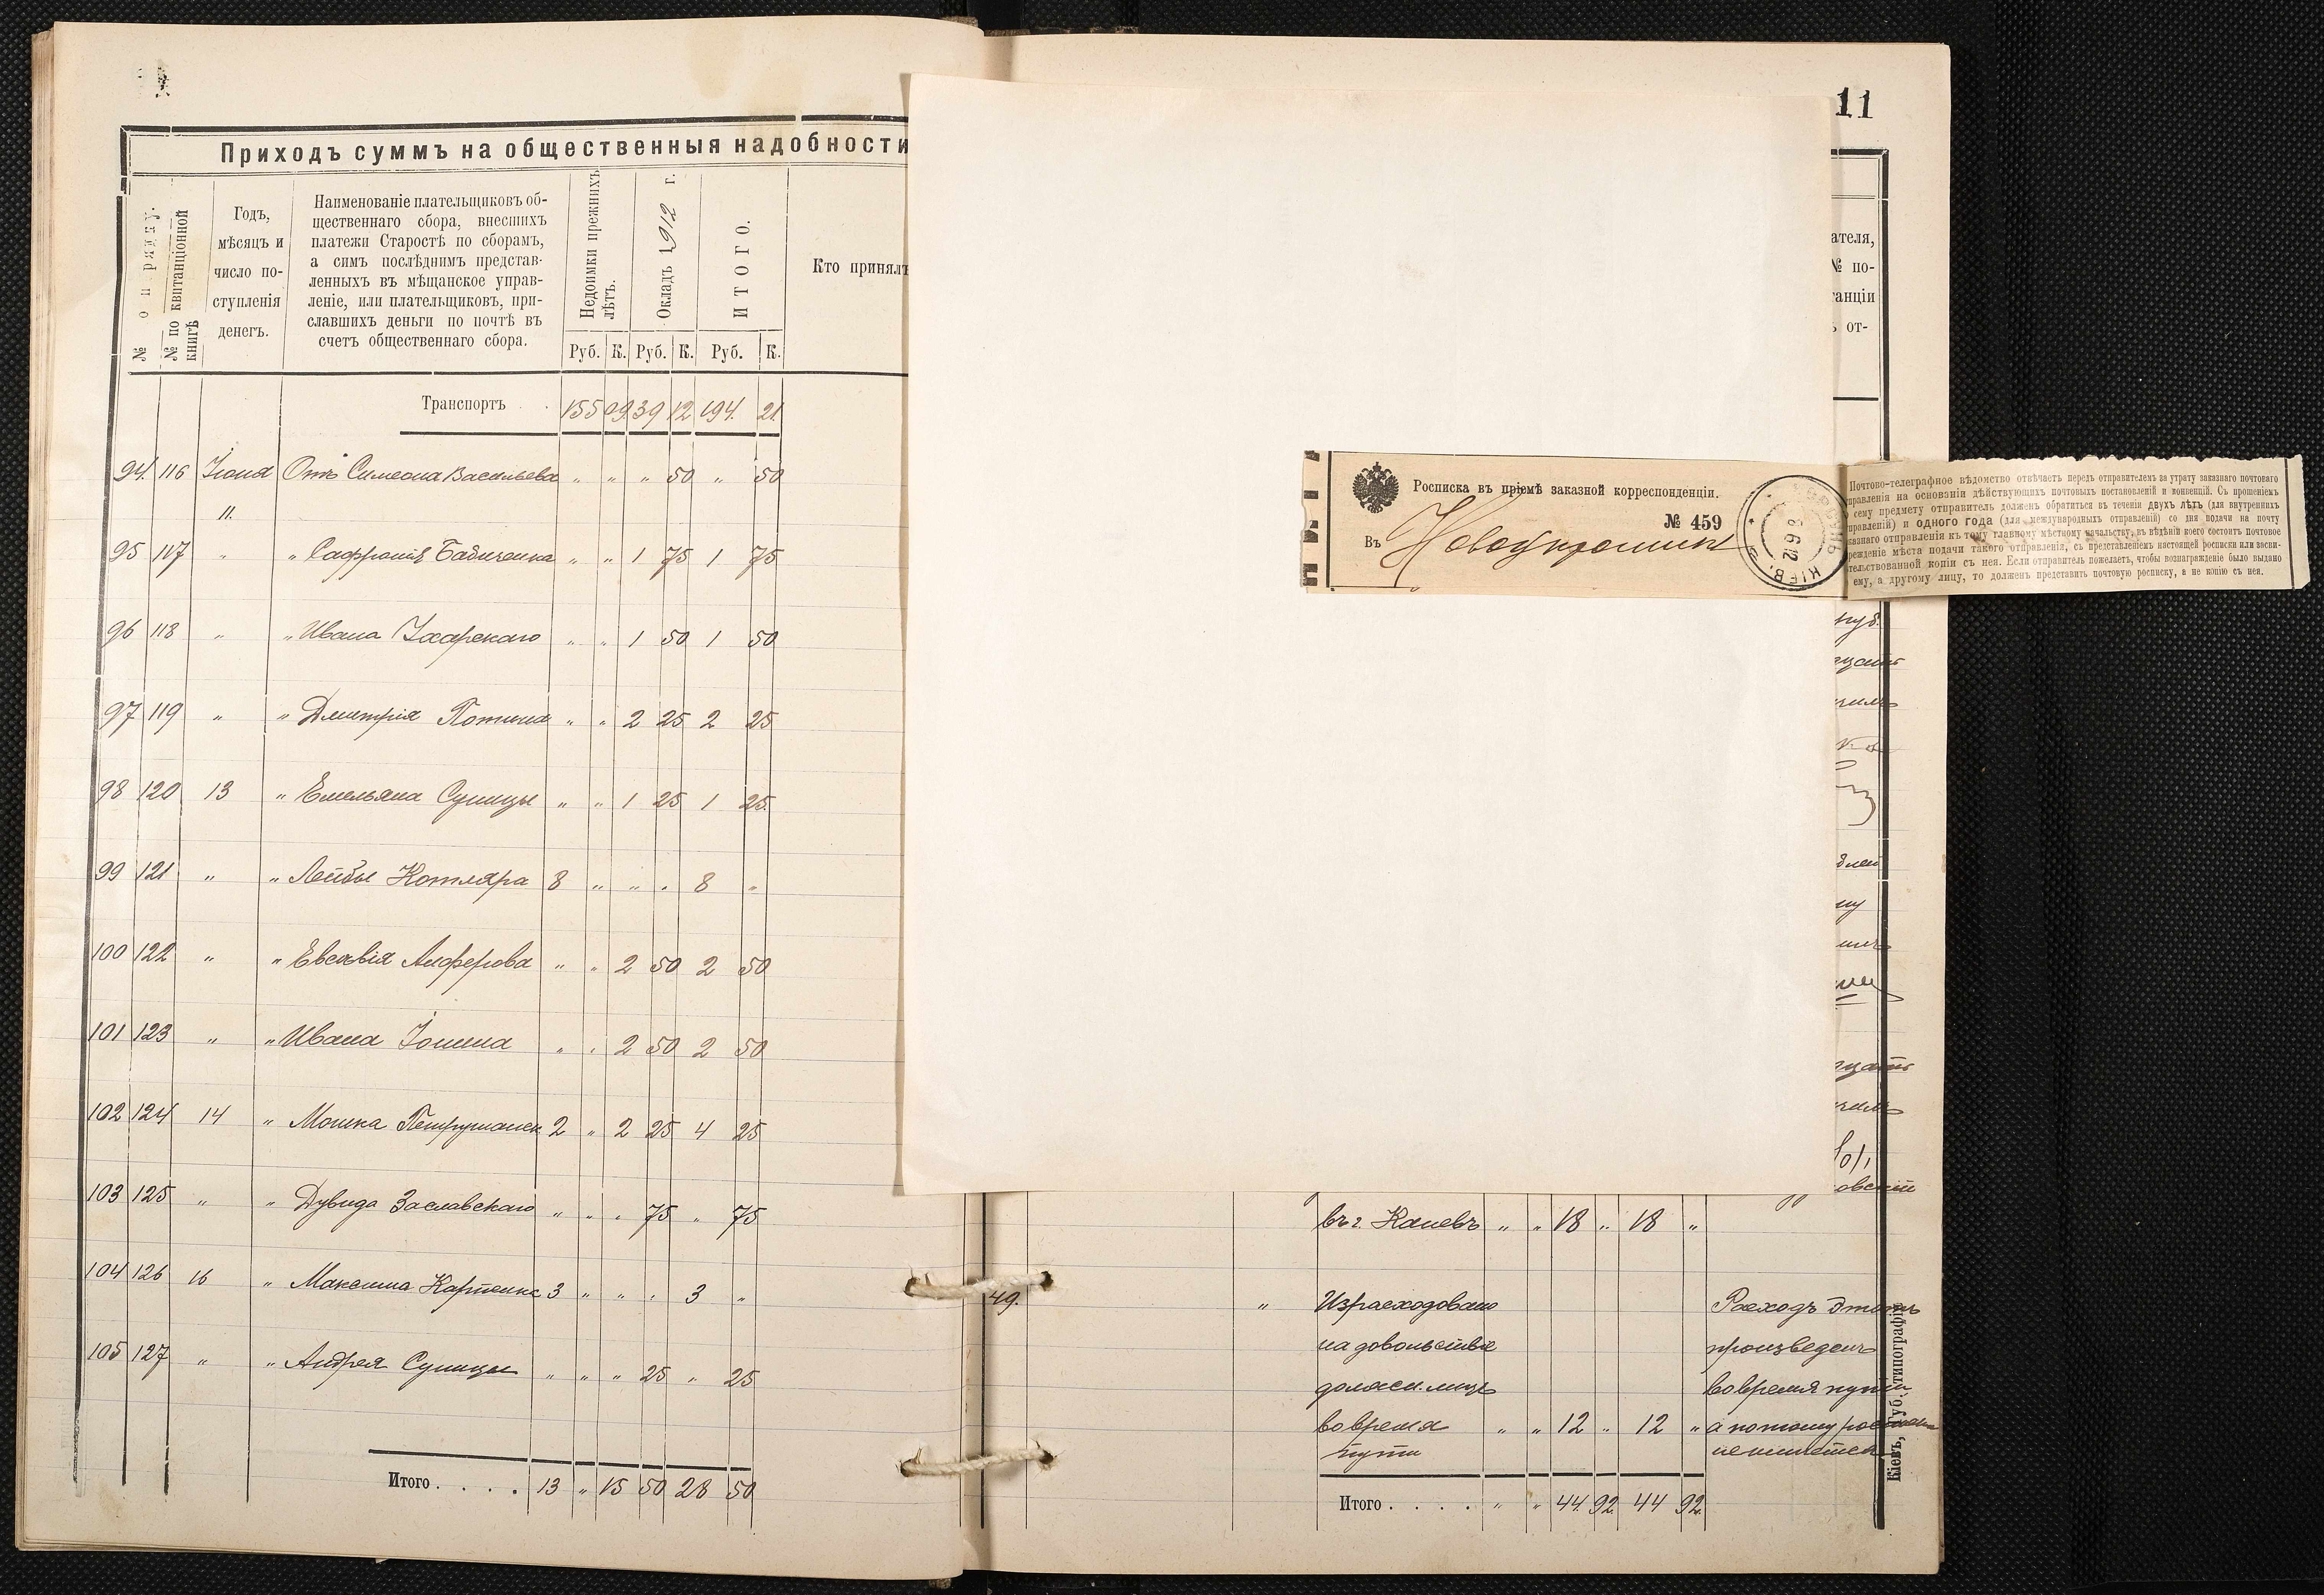 11
Приходъ суммъ на общественныя надобности
№ по ряду.
№ по квитанціонной книгѣ
Годъ, мѣсяцъ и число поступленія денегъ.
Наименованіе плательщиковъ об-
щественнаго сбора, внесшихъ
платежи Старостѣ по сборамъ,
а симъ послѣднимъ представ-
ленныхъ въ мѣщанское управ-
леніе, или плательщиковъ, при-
славшихъ деньги по почтѣ въ
счетъ общественнаго сбора.
Недоимки прежнихъ лѣтъ.
Окладъ 1912 г.
ИТОГО.
Кто принялъ
Руб. К. Руб. К. Руб. К.
Транспортъ . . 155 09 39 12 194 21
94. 116 Іюня 11. Отъ Симеона Васильева " " " 50 " 50
95 117 " " Сафронія Бабиченка " " 1 75 1 75
96 118 " " Ивана " " 1 50 1 50
97 119 " " Дмитрія " " 2 25 2 25
98 120 13 " Емельяна Супицы " " 1 25 1 25
99 121 " " Лейбы Котляра 8 " " " 8 "
100 122 " " Евсевія Алферова " " 2 50 2 50
101 123 " " Ивана " " 2 50 2 50
102 124 14 " Мошка 2 " 2 25 4 25
103 125 " " Дувида Заславскаго " " " 75 " 75
104 126 16 " Максима 3 " " " 3 "
105 127 " " Андрея Супицы " " " 25 " 25
Итого . . . . 13 " 15 50 28 50
Росписка въ пріемѣ заказной корреспонденціи.
№ 459
Въ
КІЕВ.
8 6 12
Почтово-телеграфное вѣдомство отвѣчаетъ передъ отправителемъ за утрату заказнаго почтоваго
правленія на основаніи дѣйствующихъ почтовыхъ постановленій и конвенцій. Съ прошеніемъ
сему предмету отправитель долженъ обратиться въ теченіи двухъ лѣтъ (для внутреннихъ
правленій) и одного года (для международныхъ отправленій) со дня подачи на почту
казнаго отправленія къ тому главному мѣстному начальству, въ вѣдѣніи коего состоитъ почтовое
реждение мѣста подачи такого отправленія, съ представленіемъ настоящей росписки или засви-
тельствованной копіи съ нея. Если отправитель пожелаетъ, чтобы вознагражденіе было выдано
ему, а другому лицу, то долженъ представить почтовую росписку, а не копію съ нея.
ателя,
№ по-
танціи
ъ от-
въ г. Каневъ " " 18 " 18 "
49. " Израсходовано
на довольствіе
должн. лицъ
во время " " 12 " 12 "
пути
Расходъ этотъ
произведенъ
во время пути
а потому
не имѣется
Итого . . . . " " 44 92 44 92
Кіевъ, Губ. типографія